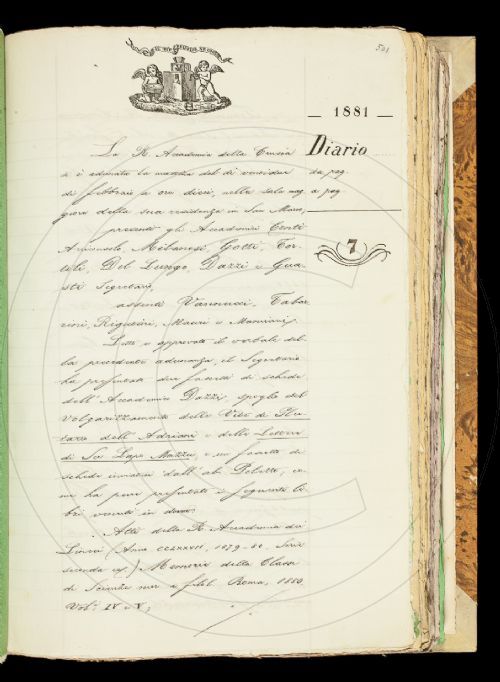 521
— 1881 —
Diario
da pag.
a pag.
7
La R. Accademia della Crusca
si è adunata la mattina del dì
di febbraio a ore dieci, nella sala mag
giore della sua residenza in San Marco,
presenti gli Accademici Conti
Milanesi, Gotti, Tor
toli, Del Lungo, Dazzi e Gua
sti Segretario,
assenti Vannucci, Tabar
rini, Rigutini, Mauri e
Letto e approvato il verbale del
la precedente adunanza, il Segretario
ha presentato due fascetti di schede
dell'Accademico Dazzi, spoglio del
Volgarizzamento delle Vite di Plu
tarco dell'Adriani e delle Lettere
di Ser Lapo Mazzei, e un fascetto di
schede inviato dall'ab.
ha pure presentato i seguenti li
bri venuti in dono:
Atti della R. Accademia dei
Lincei (Anno CCLXXVII, 1879-80. Serie
Memorie della Classe
di Scienze mor. e filol. Roma, 1880.
Vol.i IV e V;